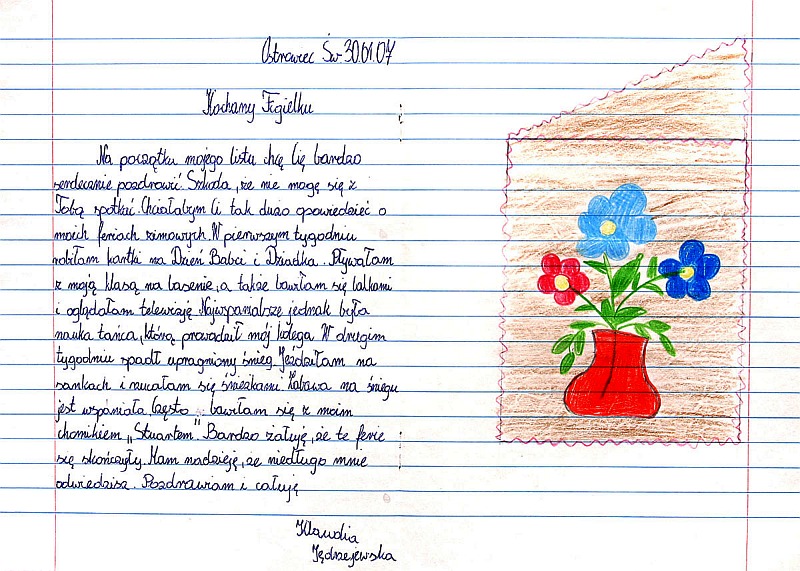 Ostrowiec Św 30.01.07
Kochany Figielku
Na początku mojego listu chcę Cię bardzo
serdecznie pozdrowić. Szkoda, że nie mogę się z
Tobą spotkać. Chciałabym Ci tak dużo opowiedzieć o
moich feriach zimowych. W pierwszym tygodniu
robiłam kartki na Dzień Babci i Dziadka. Pływałam
z moją klasą na basenie, a także bawiłam się lalkami
i oglądałam telewizję. Najwspanialsze jednak była
nauka tańca, którą prowadził mój kolega. W drugim
tygodniu spadł upragniony śnieg. Jeździłam na
sankach i rzucałam się śnieżkami. Zabawa na śniegu
jest wspaniała. Często bawiłam się z moim
chomikiem „Stuartem". Bardzo żałuję, że te ferie
się skończyły. Mam nadzieję, że niedługo mnie
odwiedzisz. Pozdrawiam i całuję
Klaudia
Jędrzejewska